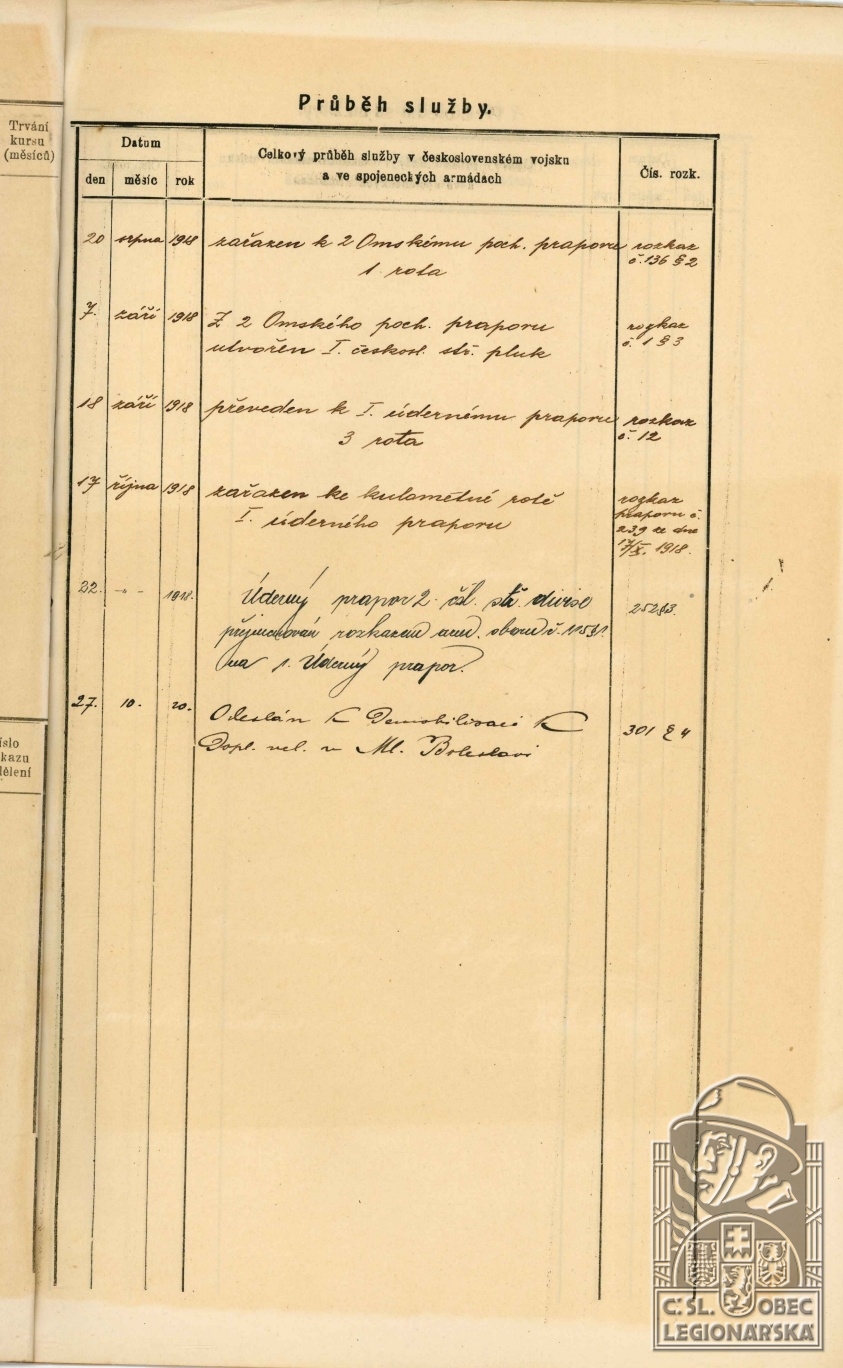 Průběh služby.
Trvání
kursu
(měsíců)
Datum
den měsíc rok
Celkový průběh služby v československém vojsku
a ve spojeneckých armádách
Čís. rozk.
20 srpna 1918 zařazen k 2 Omskému poch. praporu rozkaz
1 rota č. 136 § 2
7. září 1918 Z 2 Omského poch. praporu rozkaz
utvořen I. českosl. stř. pluk č. 1 § 3
18 září 1918 převeden k I. údernému praporu rozkaz
3 rota č. 12
17 října 1918 zařazen ke kulometné rotě rozkaz
I. úderného praporu praporu č.
239 ze dne
17/X. 1918.
22. -„- 1918. Úderný prapor 2. čsl. stř. divise
přejmenován rozkazem č.
na 1. Úderný prapor.
27. 10. 20. Odeslán k Demobilisaci k 301 § 4
Dopl. vel. v Ml. Boleslavi
íslo
kazu
dělení
Č.SL. OBEC
LEGIONÁŘSKÁ